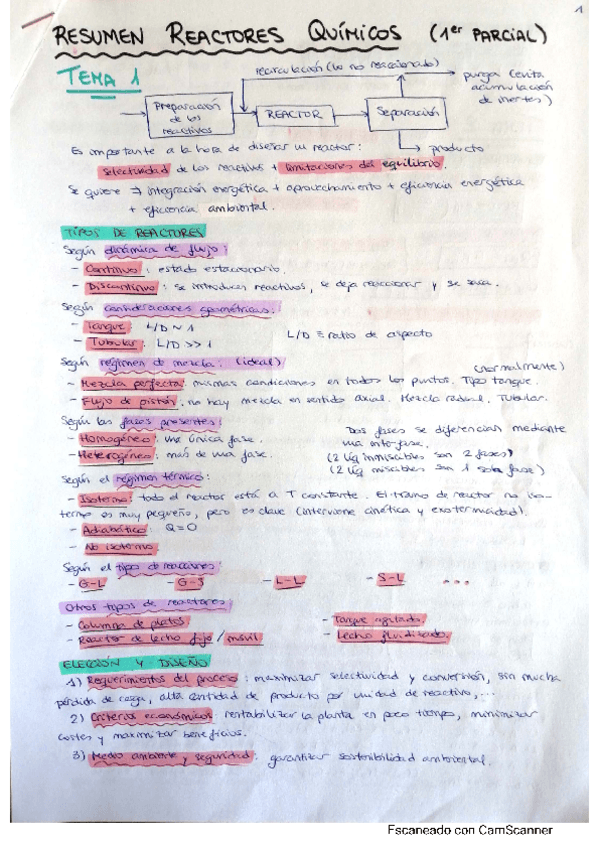 1
RESUMEN REACTORES QUÍMICOS (1er PARCIAL)
TEMA 1
recirculación (lo no reaccionado)
purga (evita acumulación de inertes)
Preparación de los reactivos
REACTOR
Separación
producto
Es importante a la hora de diseñar un reactor:
selectividad de los reactivos + limitaciones del equilibrio.
Se quiere ⇒ integración energética + aprovechamiento + eficiencia energética
+ eficiencia ambiental.
TIPOS DE REACTORES
Según dinámica de flujo:
- Continuo: estado estacionario.
- Discontinuo: se introducen reactivos, se deja reaccionar y se saca.
Según consideraciones geométricas:
- Tanque L/D ~ 1
- Tubular. L/D >> 1
L/D ≡ ratio de aspecto
Según régimen de mezcla: (ideal)
(normalmente)
- Mezcla perfecta: mismas condiciones en todos los puntos. Tipo tanque.
- Flujo de pistón: no hay mezcla en sentido axial. Mezcla radial. Tubular.
Según las fases presentes:
- Homogéneo: una única fase.
- Heterogéneo: más de una fase.
Dos fases se diferencian mediante
una interfase.
(2 líq inmiscibles son 2 fases)
(2 líq miscibles son 1 sola fase)
Según el régimen térmico:
- Isotermo: todo el reactor está a T constante. El tramo de reactor no iso-
termo es muy pequeño, pero es clave (interviene cinética y exotermicidad).
- Adiabático: Q=0
- No isotermo
Según el tipo de reacciones:
- G-L - G-S - L-L - S-L ...
Otros tipos de reactores:
- Columna de platos
- Reactor de lecho fijo / móvil
- Tanque agitado.
- Lecho fluidizado.
ELECCIÓN Y DISEÑO
1) Requerimientos del proceso: maximizar selectividad y conversión, sin mucha
pérdida de carga, alta cantidad de producto por unidad de reactivo,...
2) Criterios económicos: rentabilizar la planta en poco tiempo, minimizar
costes y maximizar beneficios.
3) Medio ambiente y seguridad: garantizar sostenibilidad ambiental.
Escaneado con CamScanner